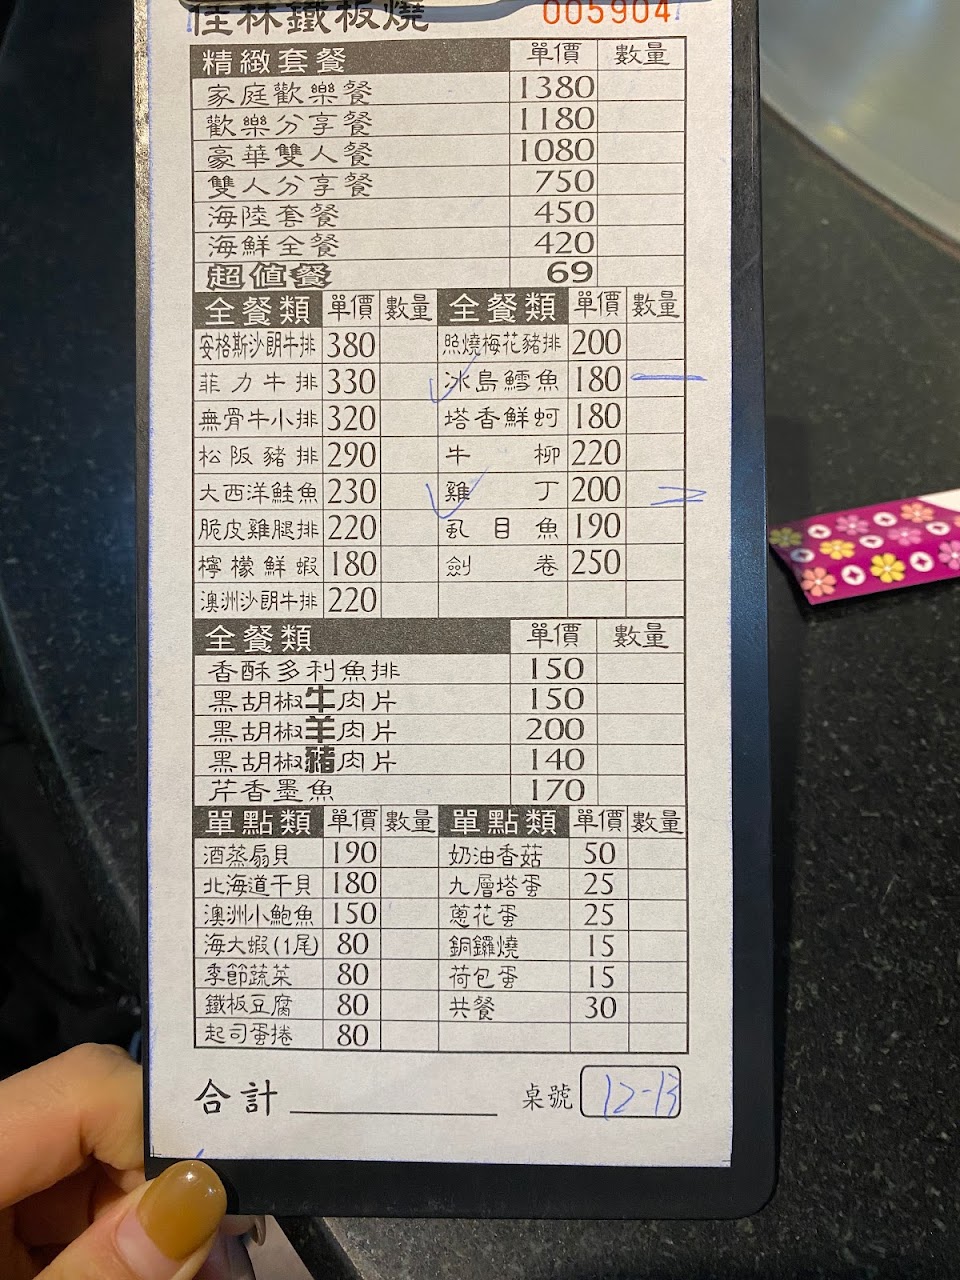 佳林鐵板燒 005904
精緻套餐 單價 數量
家庭歡樂餐 1380
歡樂分享餐 1180
豪華雙人餐 1080
雙人分享餐 750
海陸套餐 450
海鮮全餐 420
超值餐 69
全餐類 單價 數量 全餐類 單價 數量
安格斯沙朗牛排 380 照燒梅花豬排 200
菲力牛排 330 冰島鱈魚 180 一
無骨牛小排 320 塔香鮮蚵 180
松阪豬排 290 牛柳 220
大西洋鮭魚 230 雞丁 200 二
脆皮雞腿排 220 虱目魚 190
檸檬鮮蝦 180 劍卷 250
澳洲沙朗牛排 220
全餐類 單價 數量
香酥多利魚排 150
黑胡椒牛肉片 150
黑胡椒羊肉片 200
黑胡椒豬肉片 140
芹香墨魚 170
單點類 單價 數量 單點類 單價 數量
酒蒸扇貝 190 奶油香菇 50
北海道干貝 180 九層塔蛋 25
澳洲小鮑魚 150 蔥花蛋 25
海大蝦(1尾) 80 銅鑼燒 15
季節蔬菜 80 荷包蛋 15
鐵板豆腐 80 共餐 30
起司蛋捲 80
合計 桌號 12-13